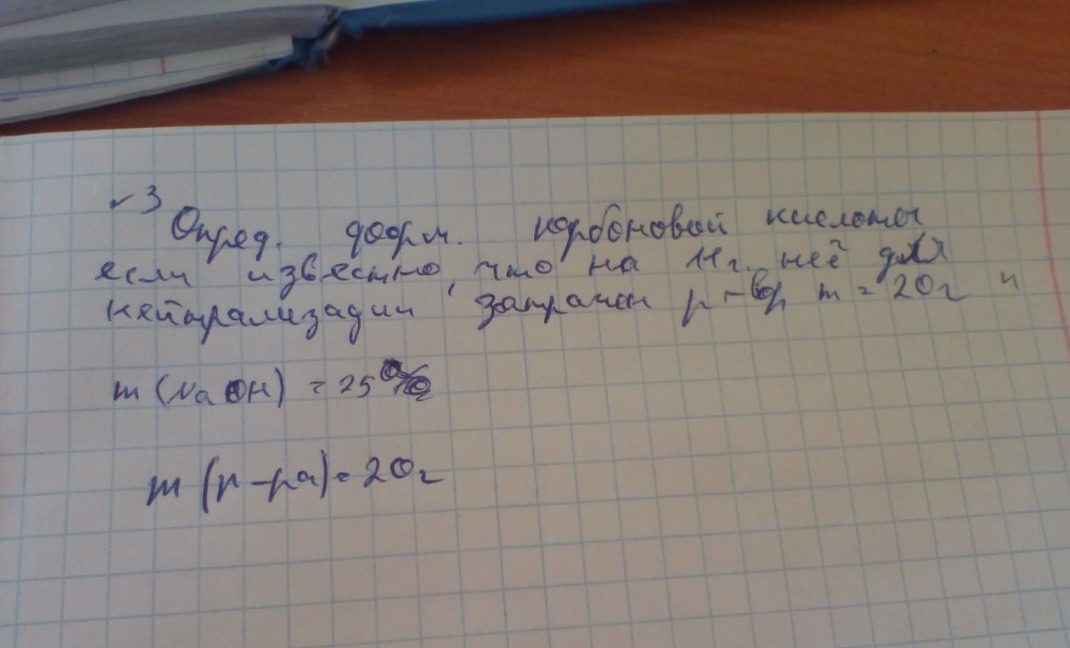 √3
Опред. форм. карбоновой кислоты
если известно, что на 11г. неё для
нейтрализации затрачен р-вр m = 20г и
m (NaOH) = 25%
m (р-ра) = 20г